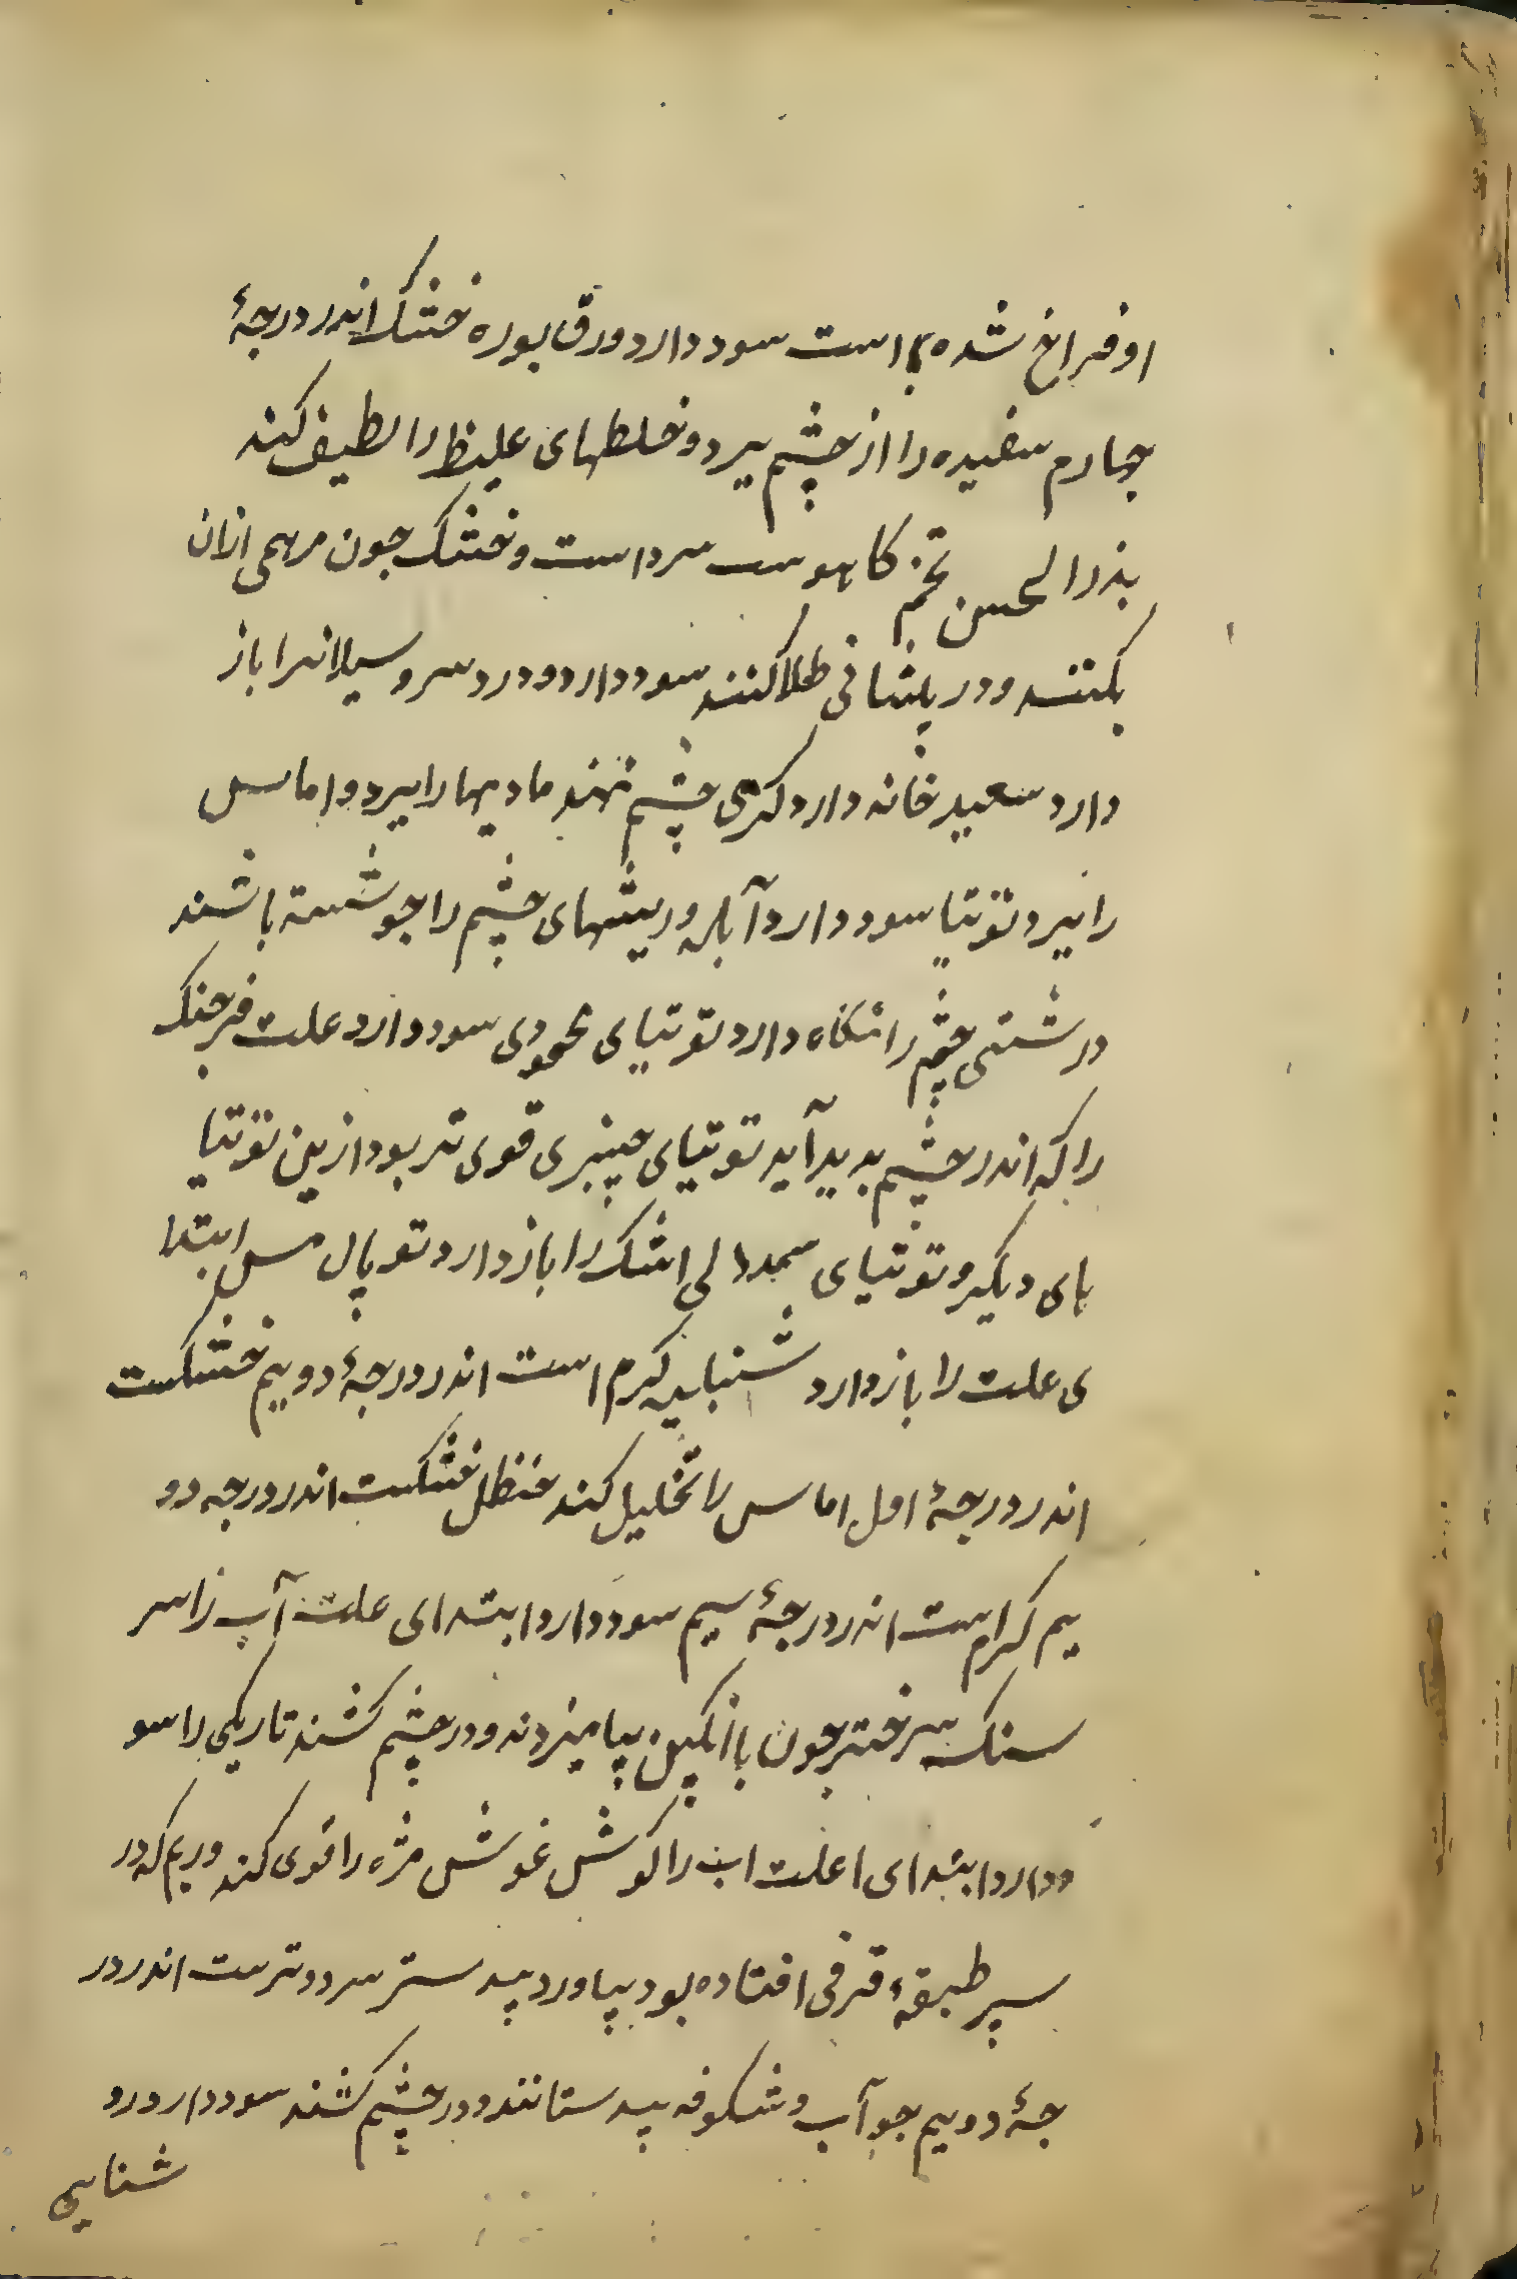 او فراغ شده است سود دارد ورق بوره خشک اندر درجهٔ
چهارم سفیده را از چشم ببرد و خلطهای غلیظ را لطیف کند
بذرالخس تخم کاهوست سرد است و خشک چون مرهمی ازان
بکنند و در پیشانی طلا کنند سود دارد و درد سر و سیلانرا باز
دارد سعید خانه دارد چشم نهند مادیها را ببرد و اماس
را نیرو توتیا سود دارد آبله و ریشهای چشم را جو شسته باشند
درشتی چشم را نکاه دارد توتیای محمودی سود دارد علت خرچنک
را که اندر چشم بدید آید توتیای چینبری قوی تر بود ازین توتیا
های دیکر و توتیای اشک را باز دارد توپال مس ابتدا
ی علت را باز دارد کرم است اندر درجهٔ دوییم خشکست
اندر درجهٔ اول اماس را تحلیل کند حنظل خشکست اندر درجه دو
یم کرم است اندر درجهٔ سیم سود دارد ابتدای علت آب را سر
سنک چون با انکبین بیامیزند و در چشم کشند تاریکی را سو
د دارد ابتدای اعلت اب را کوش مژه را قوی کند وریم که در
سپر طبقهٔ قرنی افتاده بود بیاورد بید ستر سرد و ترست اندر در
جهٔ دوییم جو آب و شکوفه بید ستانند و در چشم کشند سود دارد رو
شنایی